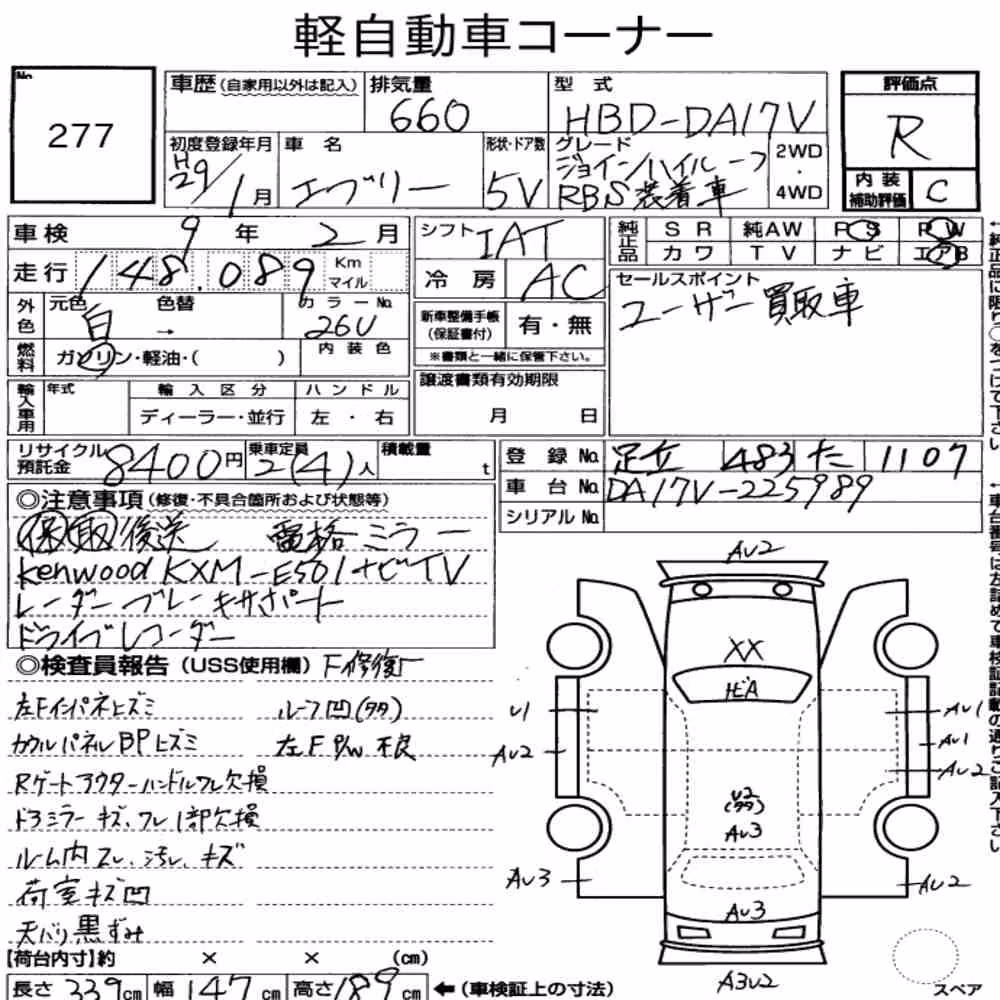 軽自動車コーナー
No. 277
車歴(自家用以外は記入)
排気量 660
型式 HBD-DA17V
評価点 R
初度登録年月 H29/1月
車名 エブリー
形状・ドア数 5V
グレード ジョインハイルーフ
RBS装着車
2WD・4WD
内装補助評価 C
車検 9年2月
シフト IAT
純正品 SR 純AW PS PW
カワ TV ナビ エアB
走行 148,089 Km マイル
冷房 AC
セールスポイント
ユーザー買取車
外色 元色 白 → 色替 カラーNo. 26U
新車整備手帳(保証書付) 有・無
※書類と一緒に保管下さい。
燃料 ガソリン・軽油・( ) 内装色
輸入車用 年式 輸入区分 ハンドル
ディーラー・並行 左・右
譲渡書類有効期限
月 日
リサイクル預託金 8400円 乗車定員 2(4)人 積載量 t
登録No. 足立 483 た 1107
車台No. DA17V-225989
シリアルNo.
◎注意事項(修復・不具合箇所および状態等)
保取後送 電格ミラー
kenwood KXM-E501ナビTV
レーダーブレーキサポート
ドライブレコーダー
◎検査員報告(USS使用欄) F修復
左Fインパネヒズミ ルーフ凹(多)
カウルパネルBPヒズミ 左F P/W不良
Rゲートアウターハンドルワレ欠損
ドアミラーキズ、ワレ1部欠損
ルーム内スレ、汚レ、キズ
荷室キズ凹
天バリ黒ずみ
【荷台内寸】約 × × (cm)
長さ 339cm 幅 147cm 高さ 189cm
←(車検証上の寸法)
AU2
XX
U1
AU2
AU1
AU1
AU2
U2
(多)
AU3
AU3
AU2
AU3
A3U2
スペア
↑純正品に限り○をつけて下さい
↑車台番号は左詰めで車検証記載の通りご記入下さい